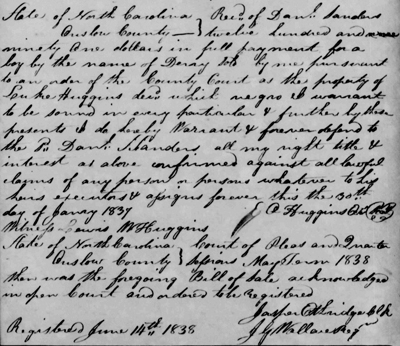 State of North Carolina } Recd. of Danl. Sanders
Onslow County — } twelve hundred and
ninety one dollars in full payment for a
boy by the name of Doray by me pursuant
to an order of the County Court as the property of
Luke Huggins decd which negro I warrant
to be sound in every particular & further by these
presents I do hereby Warrant & forever defend to
the Sd. Danl. Sanders all my right title &
interest as above confirmed against all lawful
claims of any person or persons whatever to his
heirs executors & assigns forever this the 30th
day of Janary 1837
Huggins
Witness Lewis W Huggins
State of North Carolina } Court of Pleas and Quarter
Onslow County } Sessions May Term 1838
then was the foregoing Bill of Sale acknowledged
in open Court and ordered to be Registered
Jasper Etheridge Clk
Registered June 14th 1838
J G Wallace Regr